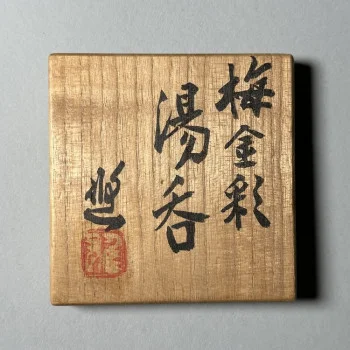 梅金彩
湯呑